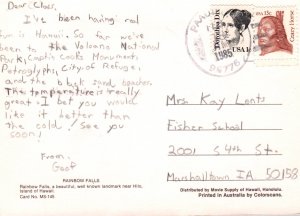 Dear Class,
I've been having real
fun is Hawaii. So far we've
been to the Volcano National
Park, Captic Cooks Monument,
Petroglyphs, City of Refuge,
and the black sand beaches.
The temperature is really
great. I bet you would
like it better than
the cold! See you
soon!
From,
Geof
RAINBOW FALLS
Rainbow Falls, a beautiful, well known landmark near Hilo,
Island of Hawaii.
Card No. MS-145
1985
96776
Dorothea Dix
USA 1c
USA 13c
Crazy Horse
Mrs Kay Lents
Fisher School
2001 S 4th St.
Marshalltown IA 50158
Distributed by Movie Supply of Hawaii, Honolulu.
Printed in Australia by Colorscans.